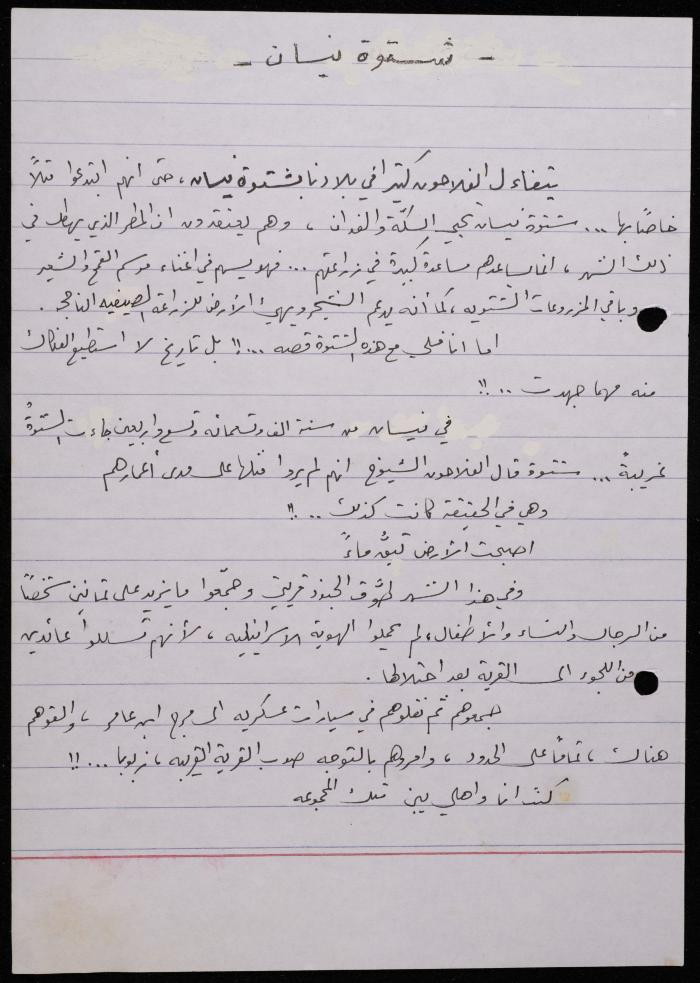 - شتوة نيسان -
يتفاءل الفلاحون كثيرا في بلادنا بشتوة نيسان، حتى انهم ابتدعوا مثلاً
خاصًا بها ... شتوة نيسان تحيي السكّة والفدان ، وهم يعتقدون ان المطر الذي يهطل في
ذلك الشهر ، انما يساعدهم مساعدة كبيرة في زراعتهم ... فهو يسهم في اغناء موسم القمح والشعير
وباقي المزروعات الشتويه ، كما أنه يدعم الشجر ويهيئ الأرض للزراعة الصيفيه الناجحه .
اما انا فلي مع هذه الشتوة قصه ...!! بل تاريخ لا استطيع الفكاك
منه مهما جهدت ...!!
في نيسان من سنة الف وتسعمائه وتسع واربعين جاءت الشتوةُ
غريبةً ... شتوة قال الفلاحون الشيوخ انهم لم يروا مثلها على مدى أعمارهم
وهي في الحقيقة كانت كذلك ...!!
اصبحت الأرض تبقُّ ماءً
وفي هذا الشهر طوَّق الجنود قريتي وجمّعوا ما يزيد على ثمانين شخصًا
من الرجال والنساء والأطفال، لم يحملوا الهوية الاسرائيليه ، لأنهم تسللوا عائدين
من اللجوء الى القرية بعد احتلالها .
جمعوهم ثم نقلوهم في سيارات عسكريه الى مرج ابن عامر ، والقوهم
هناك ، تمامًا على الحدود ، وامروهم بالتوجه صوب القرية القريبه ، زبوبا ...!!
كنت انا واهلي بين تلك المجموعه